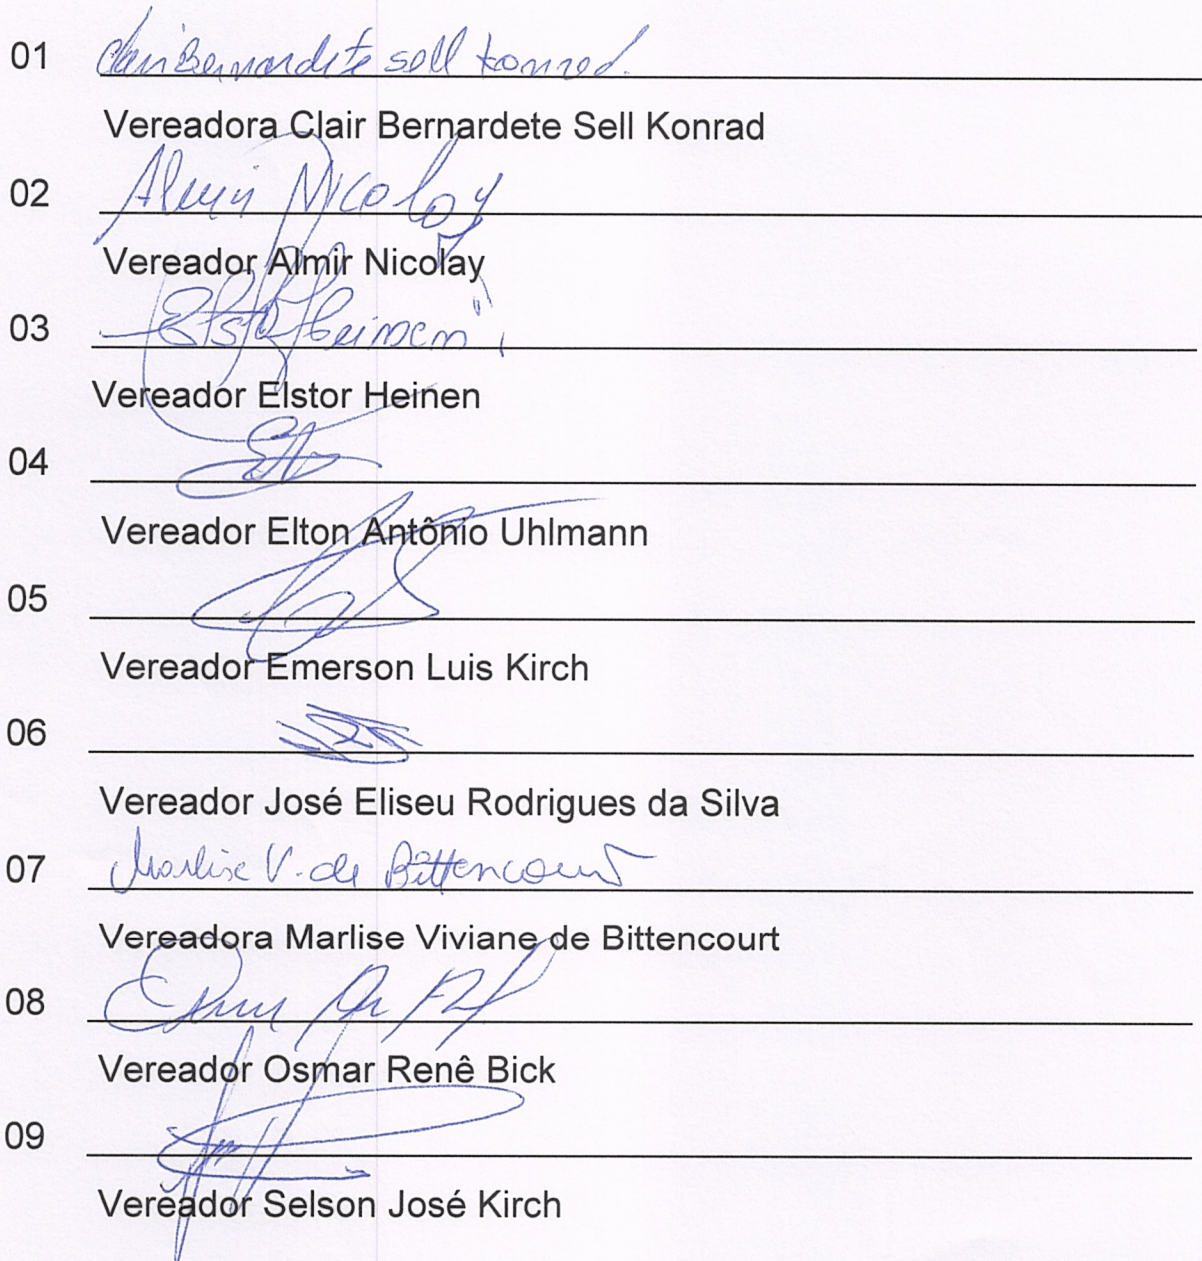 01 Clair Bernardete sell konrad.
Vereadora Clair Bernardete Sell Konrad
02 Almir Nicolay
Vereador Almir Nicolay
03 Elstor Heinen
Vereador Elstor Heinen
04
Vereador Elton Antônio Uhlmann
05
Vereador Emerson Luis Kirch
06
Vereador José Eliseu Rodrigues da Silva
07 Marlise V. de Bittencourt
Vereadora Marlise Viviane de Bittencourt
08
Vereador Osmar Renê Bick
09
Vereador Selson José Kirch